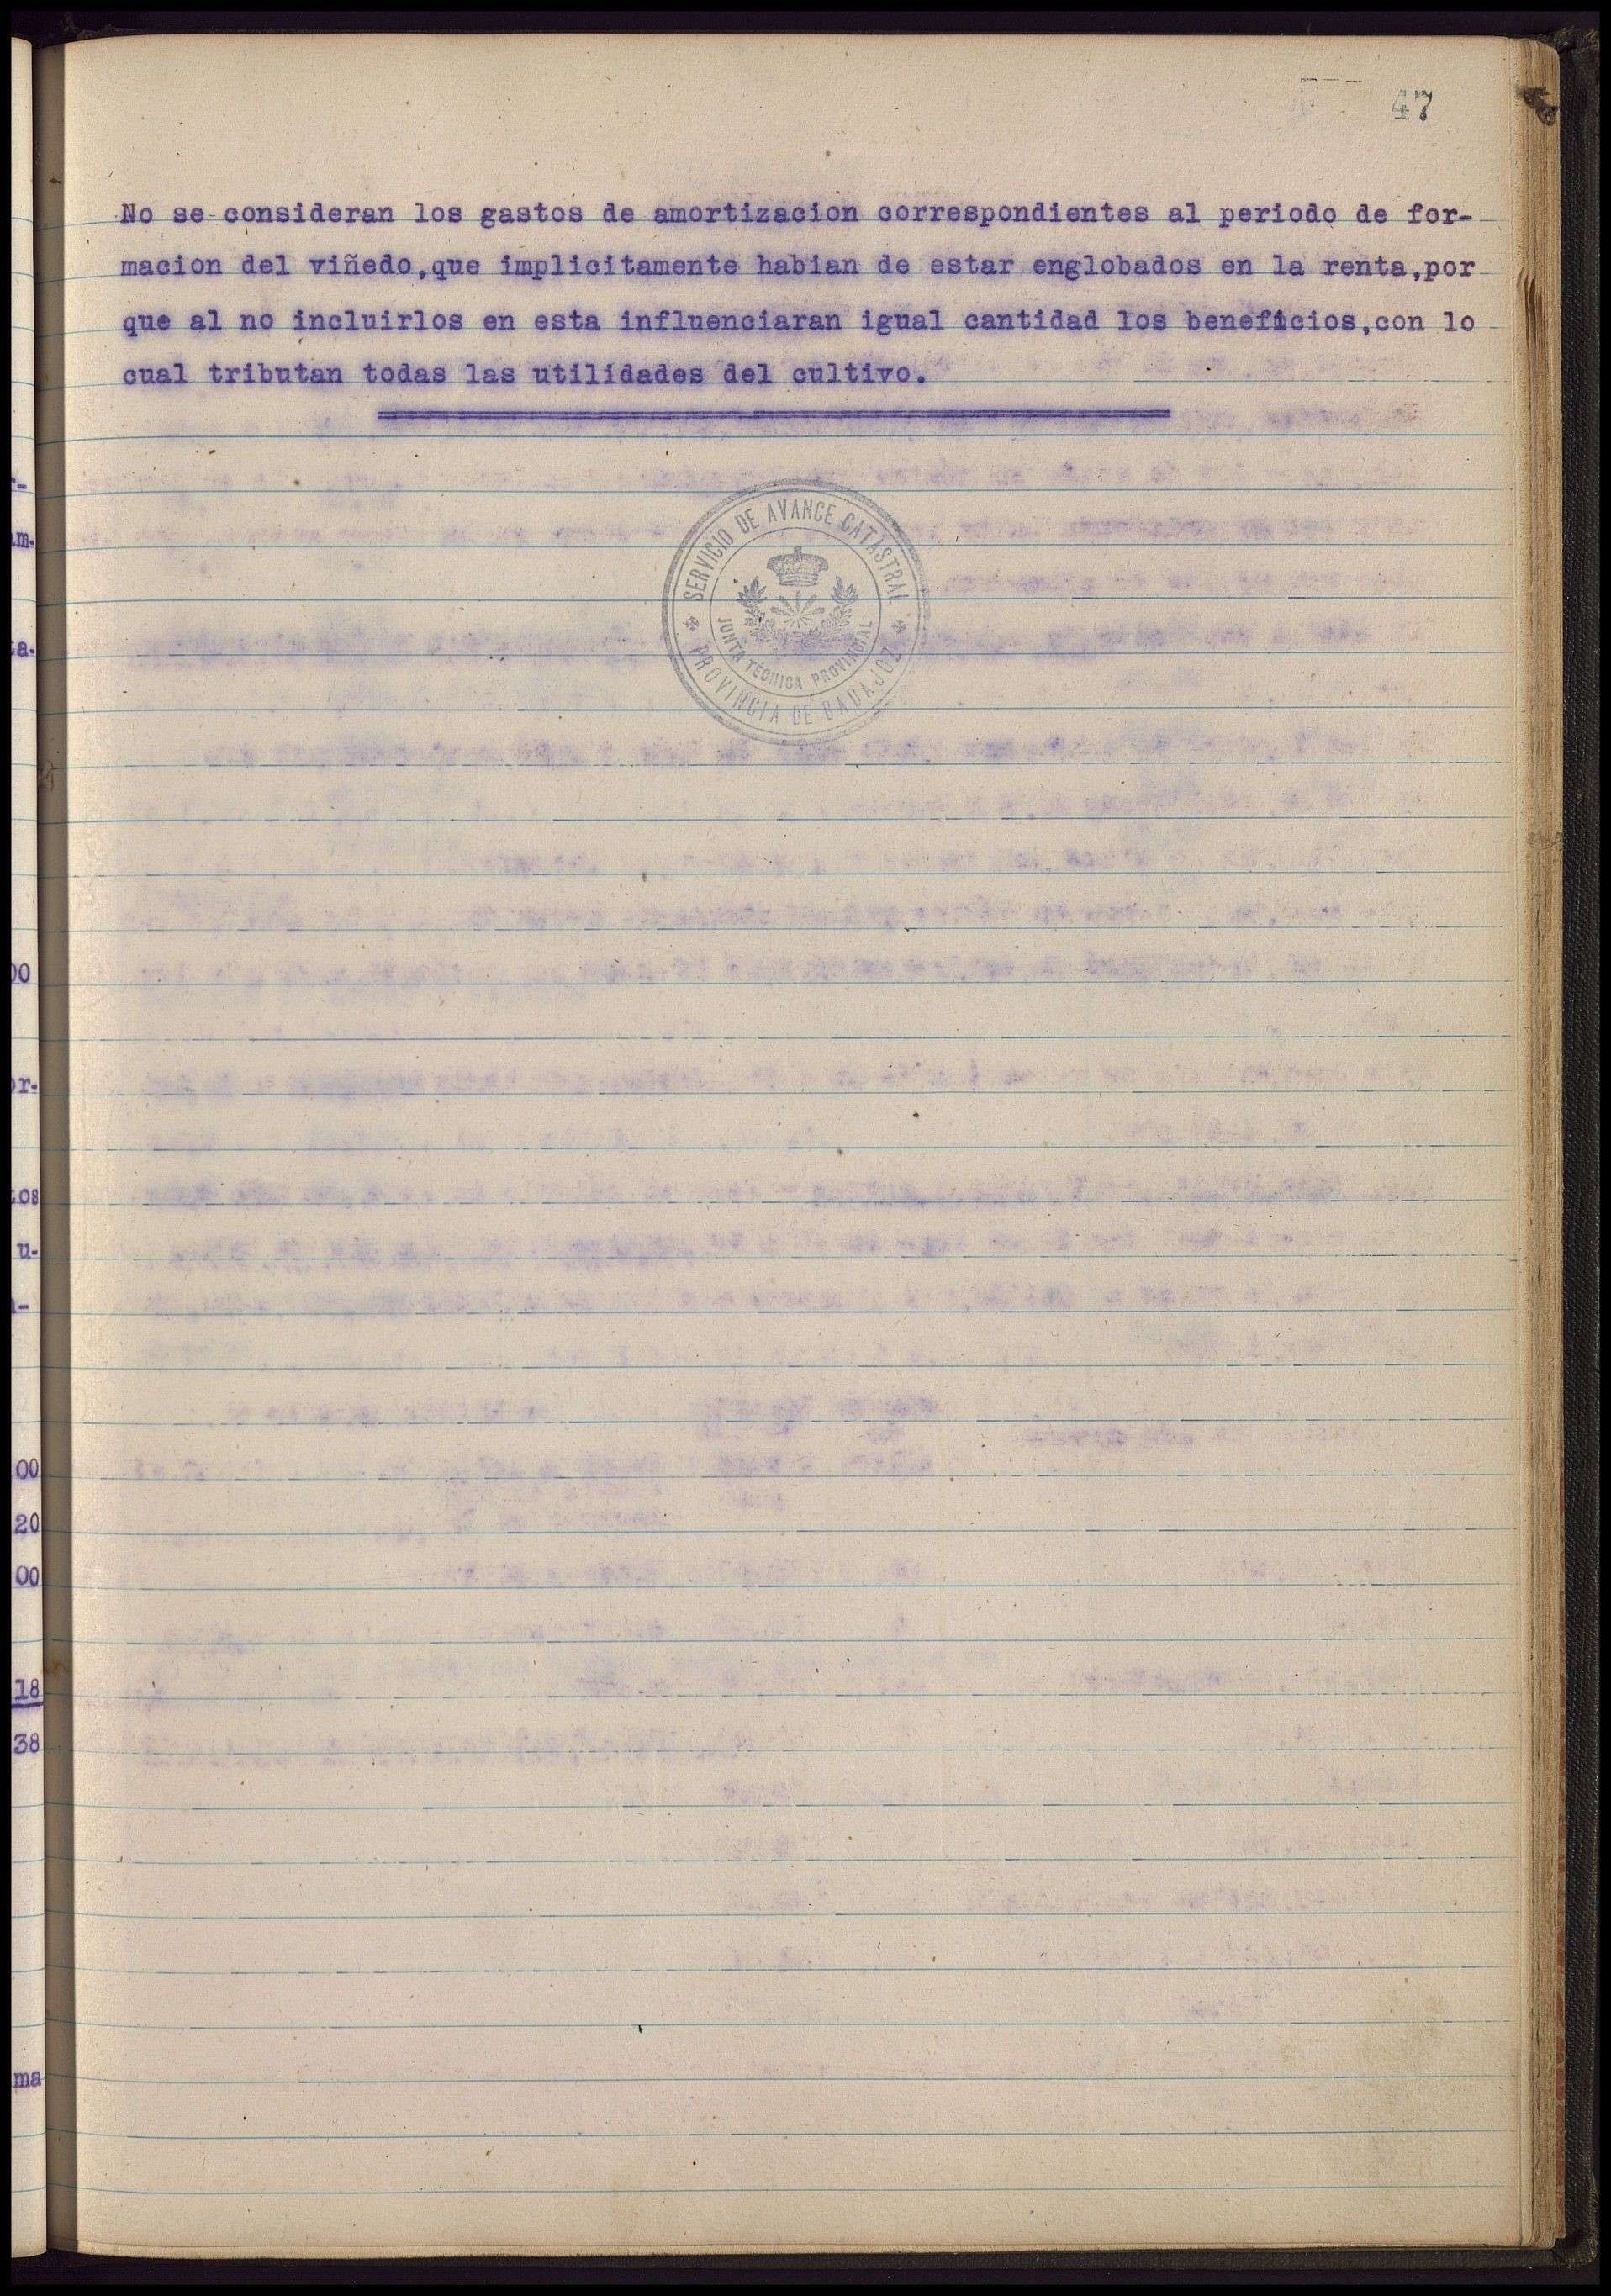 47
No se consideran los gastos de amortizacion correspondientes al periodo de for-
macion del viñedo,que implicitamente habian de estar englobados en la renta,por
que al no incluirlos en esta influenciaran igual cantidad los beneficios,con lo
cual tributan todas las utilidades del cultivo.
SERVICIO DE AVANCE CATASTRAL
JUNTA TÉCNICA PROVINCIAL
PROVINCIA DE BADAJOZ
am-
ta-
00
or-
tos
u-
00
20
00
18
38
ma